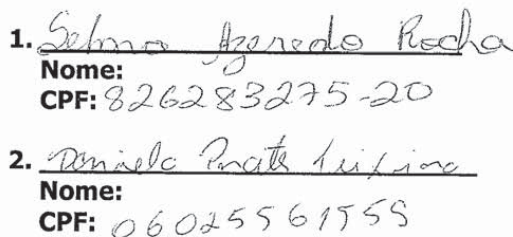 1. Selma Azevedo Rocha
Nome:
CPF: 826283275-20
2. Daniela
Nome:
CPF: 06025561555